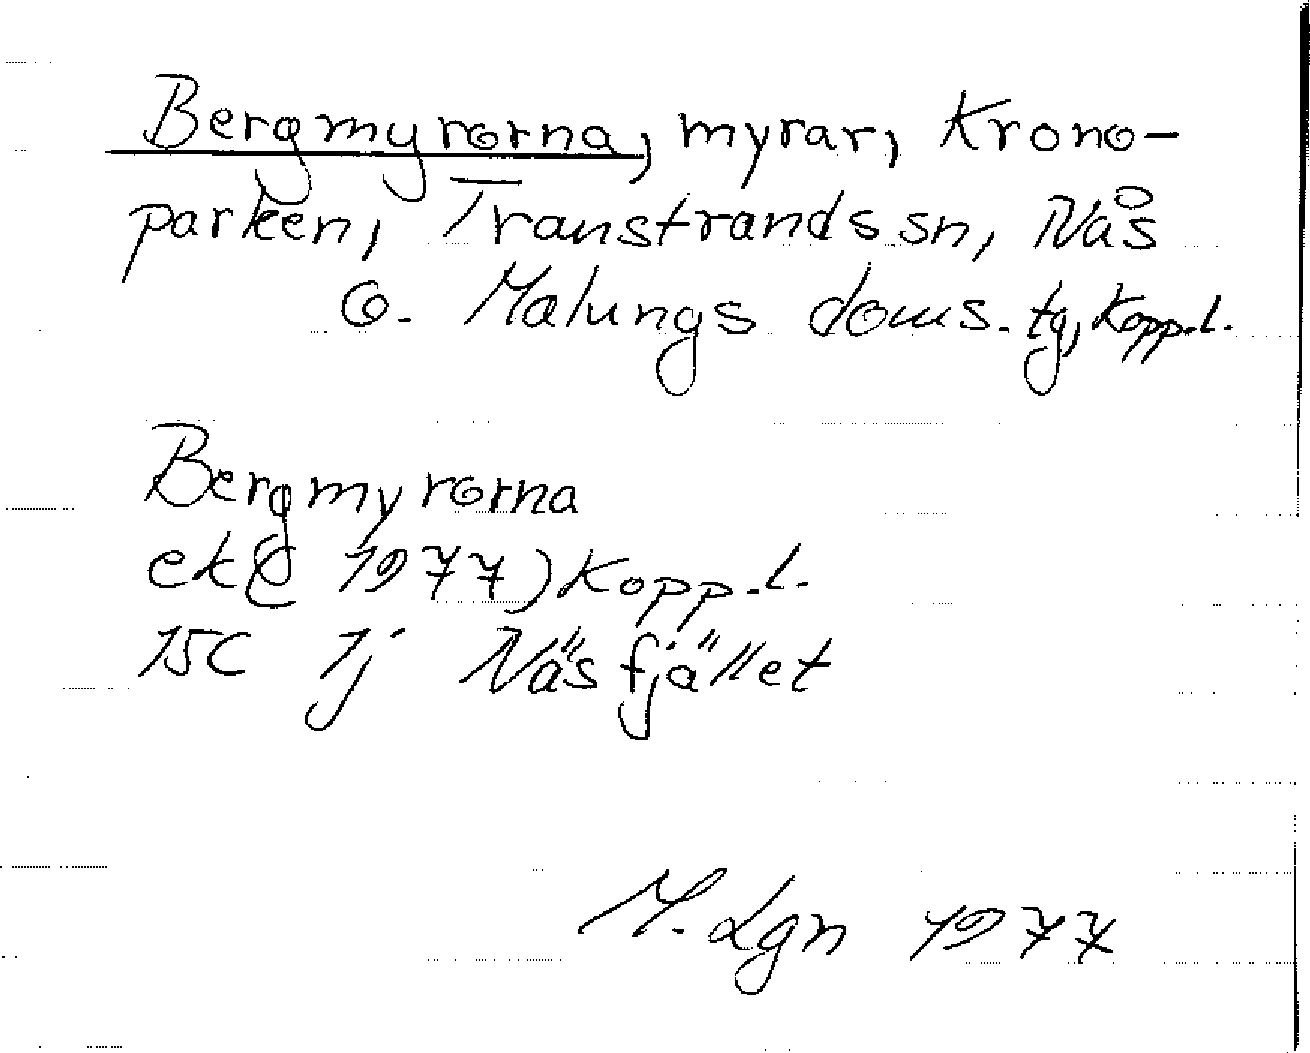 Bergmyrorna, myrar, Krono-
parken, Transtrands sn, Nås
o. Malungs doms. tg, Kopp.l.
Bergmyrorna
ek( 1977) Kopp.l.
15C 1j Näsfjället
M. Lgn 1977